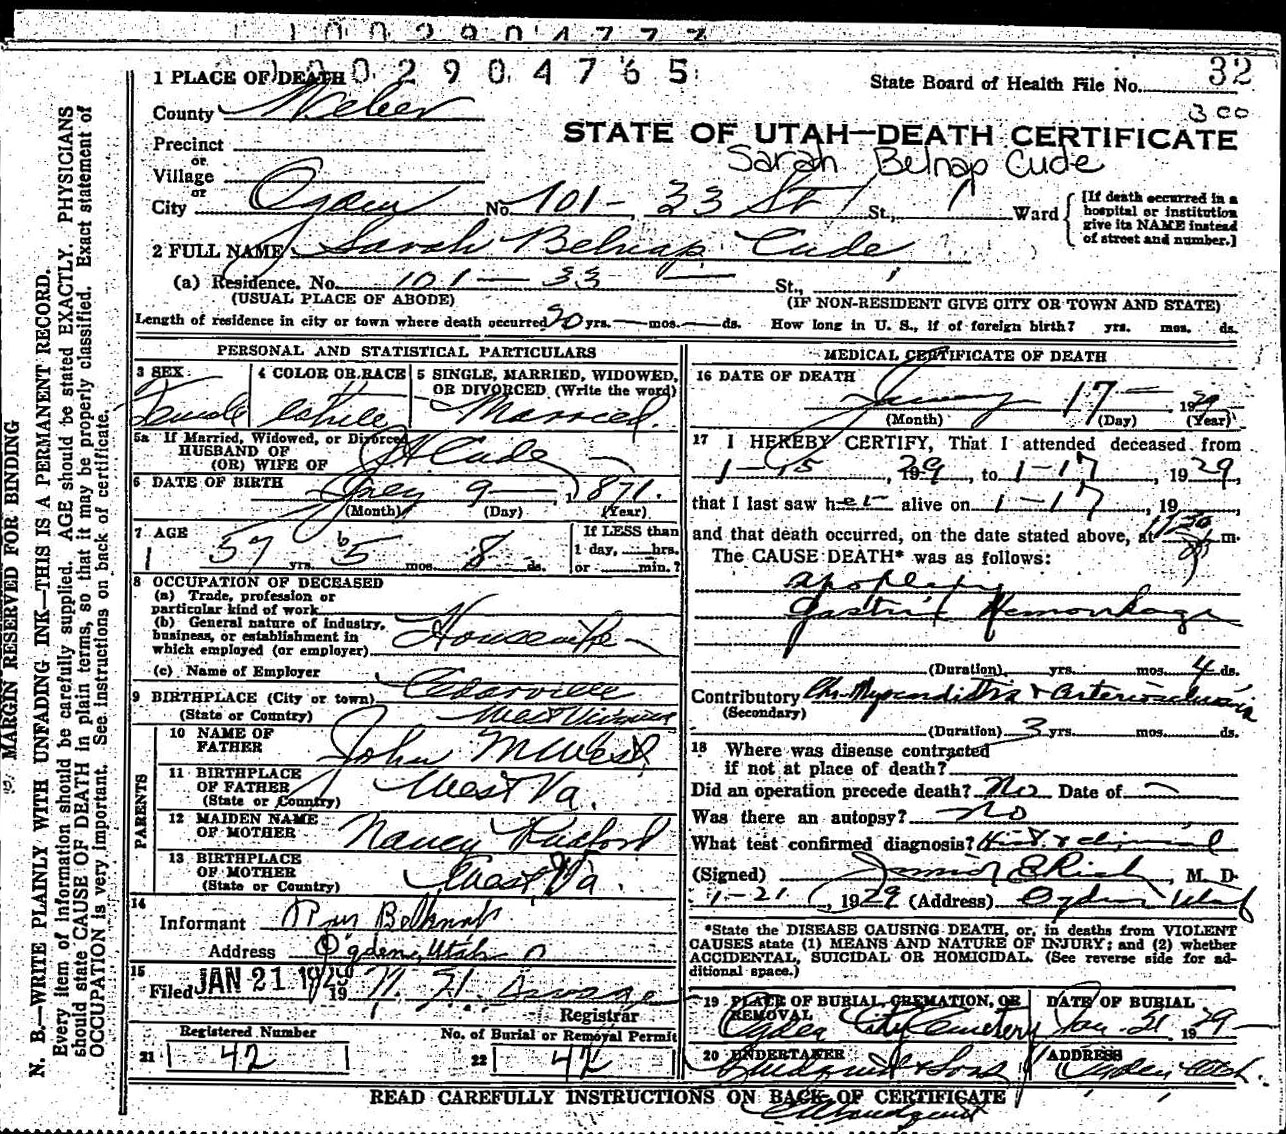 1 0 0 2 9 0 4 7 7 7
1 PLACE OF DEATH 1 0 0 2 9 0 4 7 6 5
State Board of Health File No. 32
County Weber
300
STATE OF UTAH—DEATH CERTIFICATE
Precinct
Sarah Belnap Cude
or
Village
or
City Ogden No. 101 - 33 St St., Ward
[If death occurred in a hospital or institution give its NAME instead of street and number.]
2 FULL NAME Sarah Belnap Cude
(a) Residence. No. 101 — 33 — St.,
(USUAL PLACE OF ABODE) (IF NON-RESIDENT GIVE CITY OR TOWN AND STATE)
Length of residence in city or town where death occurred 20 yrs. — mos. — ds. How long in U. S., if of foreign birth? yrs. mos. ds.
PERSONAL AND STATISTICAL PARTICULARS
3 SEX 4 COLOR OR RACE 5 SINGLE, MARRIED, WIDOWED, OR DIVORCED (Write the word)
Female White Married.
5a If Married, Widowed, or Divorced
HUSBAND OF
(OR) WIFE OF Cude
6 DATE OF BIRTH 9 — 1871.
(Month) (Day) (Year)
7 AGE 57 yrs. 5 mos. 8 ds.
If LESS than
1 day, hrs.
or min.?
8 OCCUPATION OF DECEASED
(a) Trade, profession or
particular kind of work
(b) General nature of industry,
business, or establishment in
which employed (or employer) Housewife
(c) Name of Employer
9 BIRTHPLACE (City or town) Cedarville
(State or Country) West Virginia
PARENTS
10 NAME OF FATHER John M West
11 BIRTHPLACE OF FATHER
(State or Country) West Va.
12 MAIDEN NAME OF MOTHER Nancy
13 BIRTHPLACE OF MOTHER
(State or Country) West Va.
14
Informant Belknap
Address Ogden, Utah
15
Filed JAN 21 1929 19
Registrar
Registered Number No. of Burial or Removal Permit
21 42 22 42
MEDICAL CERTIFICATE OF DEATH
16 DATE OF DEATH
17 — 1929
(Month) (Day) (Year)
17 I HEREBY CERTIFY, That I attended deceased from
1-15, 1929, to 1-17, 1929,
that I last saw her alive on 1-17, 19
and that death occurred, on the date stated above, at m.
The CAUSE DEATH* was as follows:
Apoplexy
Gastric Hemorrhage
(Duration) yrs. mos. 4 ds.
Contributory Chr. Myocarditis & Arteriosclerosis
(Secondary)
(Duration) 3 yrs. mos. ds.
18 Where was disease contracted
if not at place of death?
Did an operation precede death? No Date of —
Was there an autopsy? no
What test confirmed diagnosis? Hist. & clinical
(Signed) Rich, M. D.
1-21, 1929 (Address) Ogden Utah
*State the DISEASE CAUSING DEATH, or, in deaths from VIOLENT
CAUSES state (1) MEANS AND NATURE OF INJURY; and (2) whether
ACCIDENTAL, SUICIDAL OR HOMICIDAL. (See reverse side for ad-
ditional space.)
19 PLACE OF BURIAL, CREMATION, OR REMOVAL DATE OF BURIAL
Ogden City Cemetery Jan. 21 1929
20 UNDERTAKER ADDRESS
& Sons Ogden Utah.
READ CAREFULLY INSTRUCTIONS ON BACK OF CERTIFICATE
MARGIN RESERVED FOR BINDING
N. B.—WRITE PLAINLY WITH UNFADING INK—THIS IS A PERMANENT RECORD.
Every item of information should be carefully supplied. AGE should be stated EXACTLY. PHYSICIANS
should state CAUSE OF DEATH in plain terms, so that it may be properly classified. Exact statement of
OCCUPATION is very important. See instructions on back of certificate.